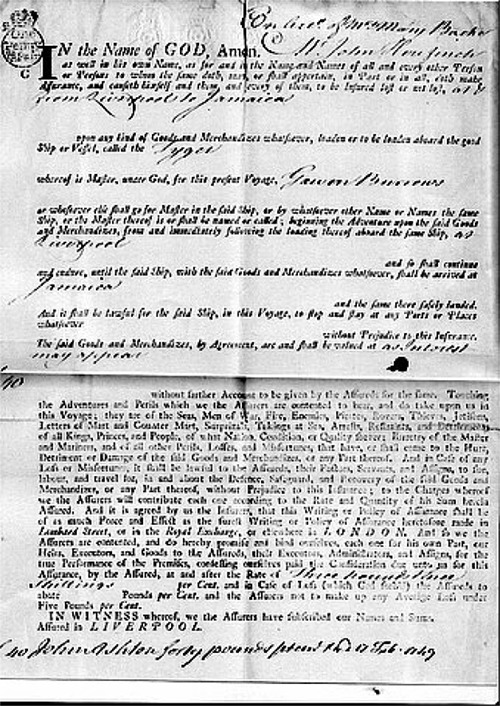 On Acct. of Mrs Mary Backe
IN the Name of GOD, Amen. Mr John
as well in his own Name, as for and in the Name and Names of all and every other Person
or Persons to whom the same doth, may, or shall appertain, in Part or in all, doth make
Assurance, and causeth himself and them, and every of them, to be Insured lost or not lost, at &
from Liverpool to Jamaica
upon any kind of Goods and Merchandizes whatsoever, loaden or to be loaden aboard the good
Ship or Vessel, called the Tyger
whereof is Master, under God, for this present Voyage, Gawon Burrows
or whosoever else shall go for Master in the said Ship, or by whatsoever other Name or Names the same
Ship, or the Master thereof is or shall be named or called; beginning the Adventure upon the said Goods
and Merchandizes, from and immediately following the loading thereof aboard the same Ship, at
Liverpool
and so shall continue
and endure, until the said Ship, with the said Goods and Merchandizes whatsoever, shall be arrived at
Jamaica
and the same there safely landed.
And it shall be lawful for the said Ship, in this Voyage, to stop and stay at any Ports or Places
whatsoever
without Prejudice to this Insurance.
The said Goods and Merchandizes, by Agreement, are and shall be valued at as Interest
may appear
40
without further Account to be given by the Assureds for the same. Touching
the Adventures and Perils which we the Assurers are contented to bear, and do take upon us in
this Voyage; they are of the Seas, Men of War, Fire, Enemies, Pirates, Rovers, Thieves, Jettisons,
Letters of Mart and Counter Mart, Surprizals, Takings at Sea, Arrests, Restraints, and Detainments
of all Kings, Princes, and People, of what Nation, Condition, or Quality soever; Barratry of the Master
and Mariners, and of all other Perils, Losses, and Misfortunes, that have, or shall come to the Hurt,
Detriment or Damage of the said Goods and Merchandizes, or any Part thereof. And in Case of any
Loss or Misfortunes, it shall be lawful to the Assureds, their Factors, Servants, and Assigns, to sue,
labour, and travel for, in and about the Defence, Safeguard, and Recovery of the said Goods and
Merchandizes, or any Part thereof, without Prejudice to this Insurance; to the Charges whereof
we the Assurers will contribute each one according to the Rate and Quantity of his Sum herein
Assured. And it is agreed by us the Insurers, that this Writing or Policy of Assurance shall be
of as much Force and Effect as the surest Writing or Policy of Assurance heretofore made in
Lombard Street, or in the Royal Exchange, or elsewhere in LONDON. And so we the
Assurers are contented, and do hereby promise and bind ourselves, each one for his own Part, our
Heirs, Executors, and Goods to the Assureds, their Executors, Administrators, and Assigns, for the
true Performance of the Premises, confessing ourselves paid the Consideration due unto us for this
Assurance, by the Assured, at and after the Rate of Three pounds three
shillings per Cent. and in Case of Loss (which God forbid) the Assureds to
abate Pounds per Cent. and the Assurers not to make up any Average Loss under
Five Pounds per Cent.
IN WITNESS whereof, we the Assurers have subscribed our Names and Sums.
Assured in LIVERPOOL.
£40 John Ashton forty pounds 17 Feb. 1749